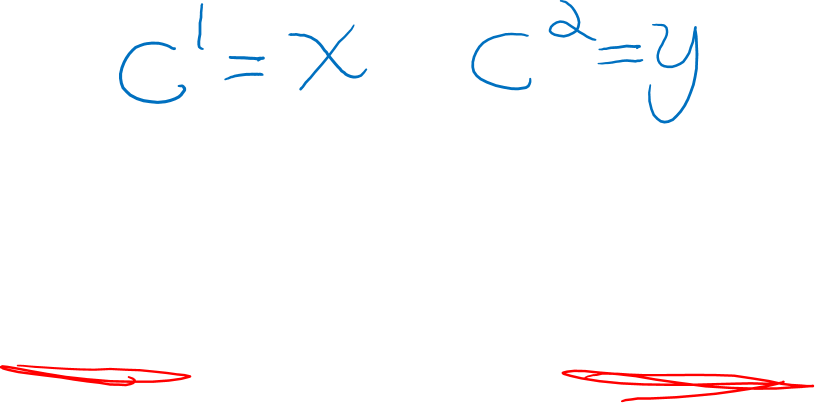 c¹ = x c² = y